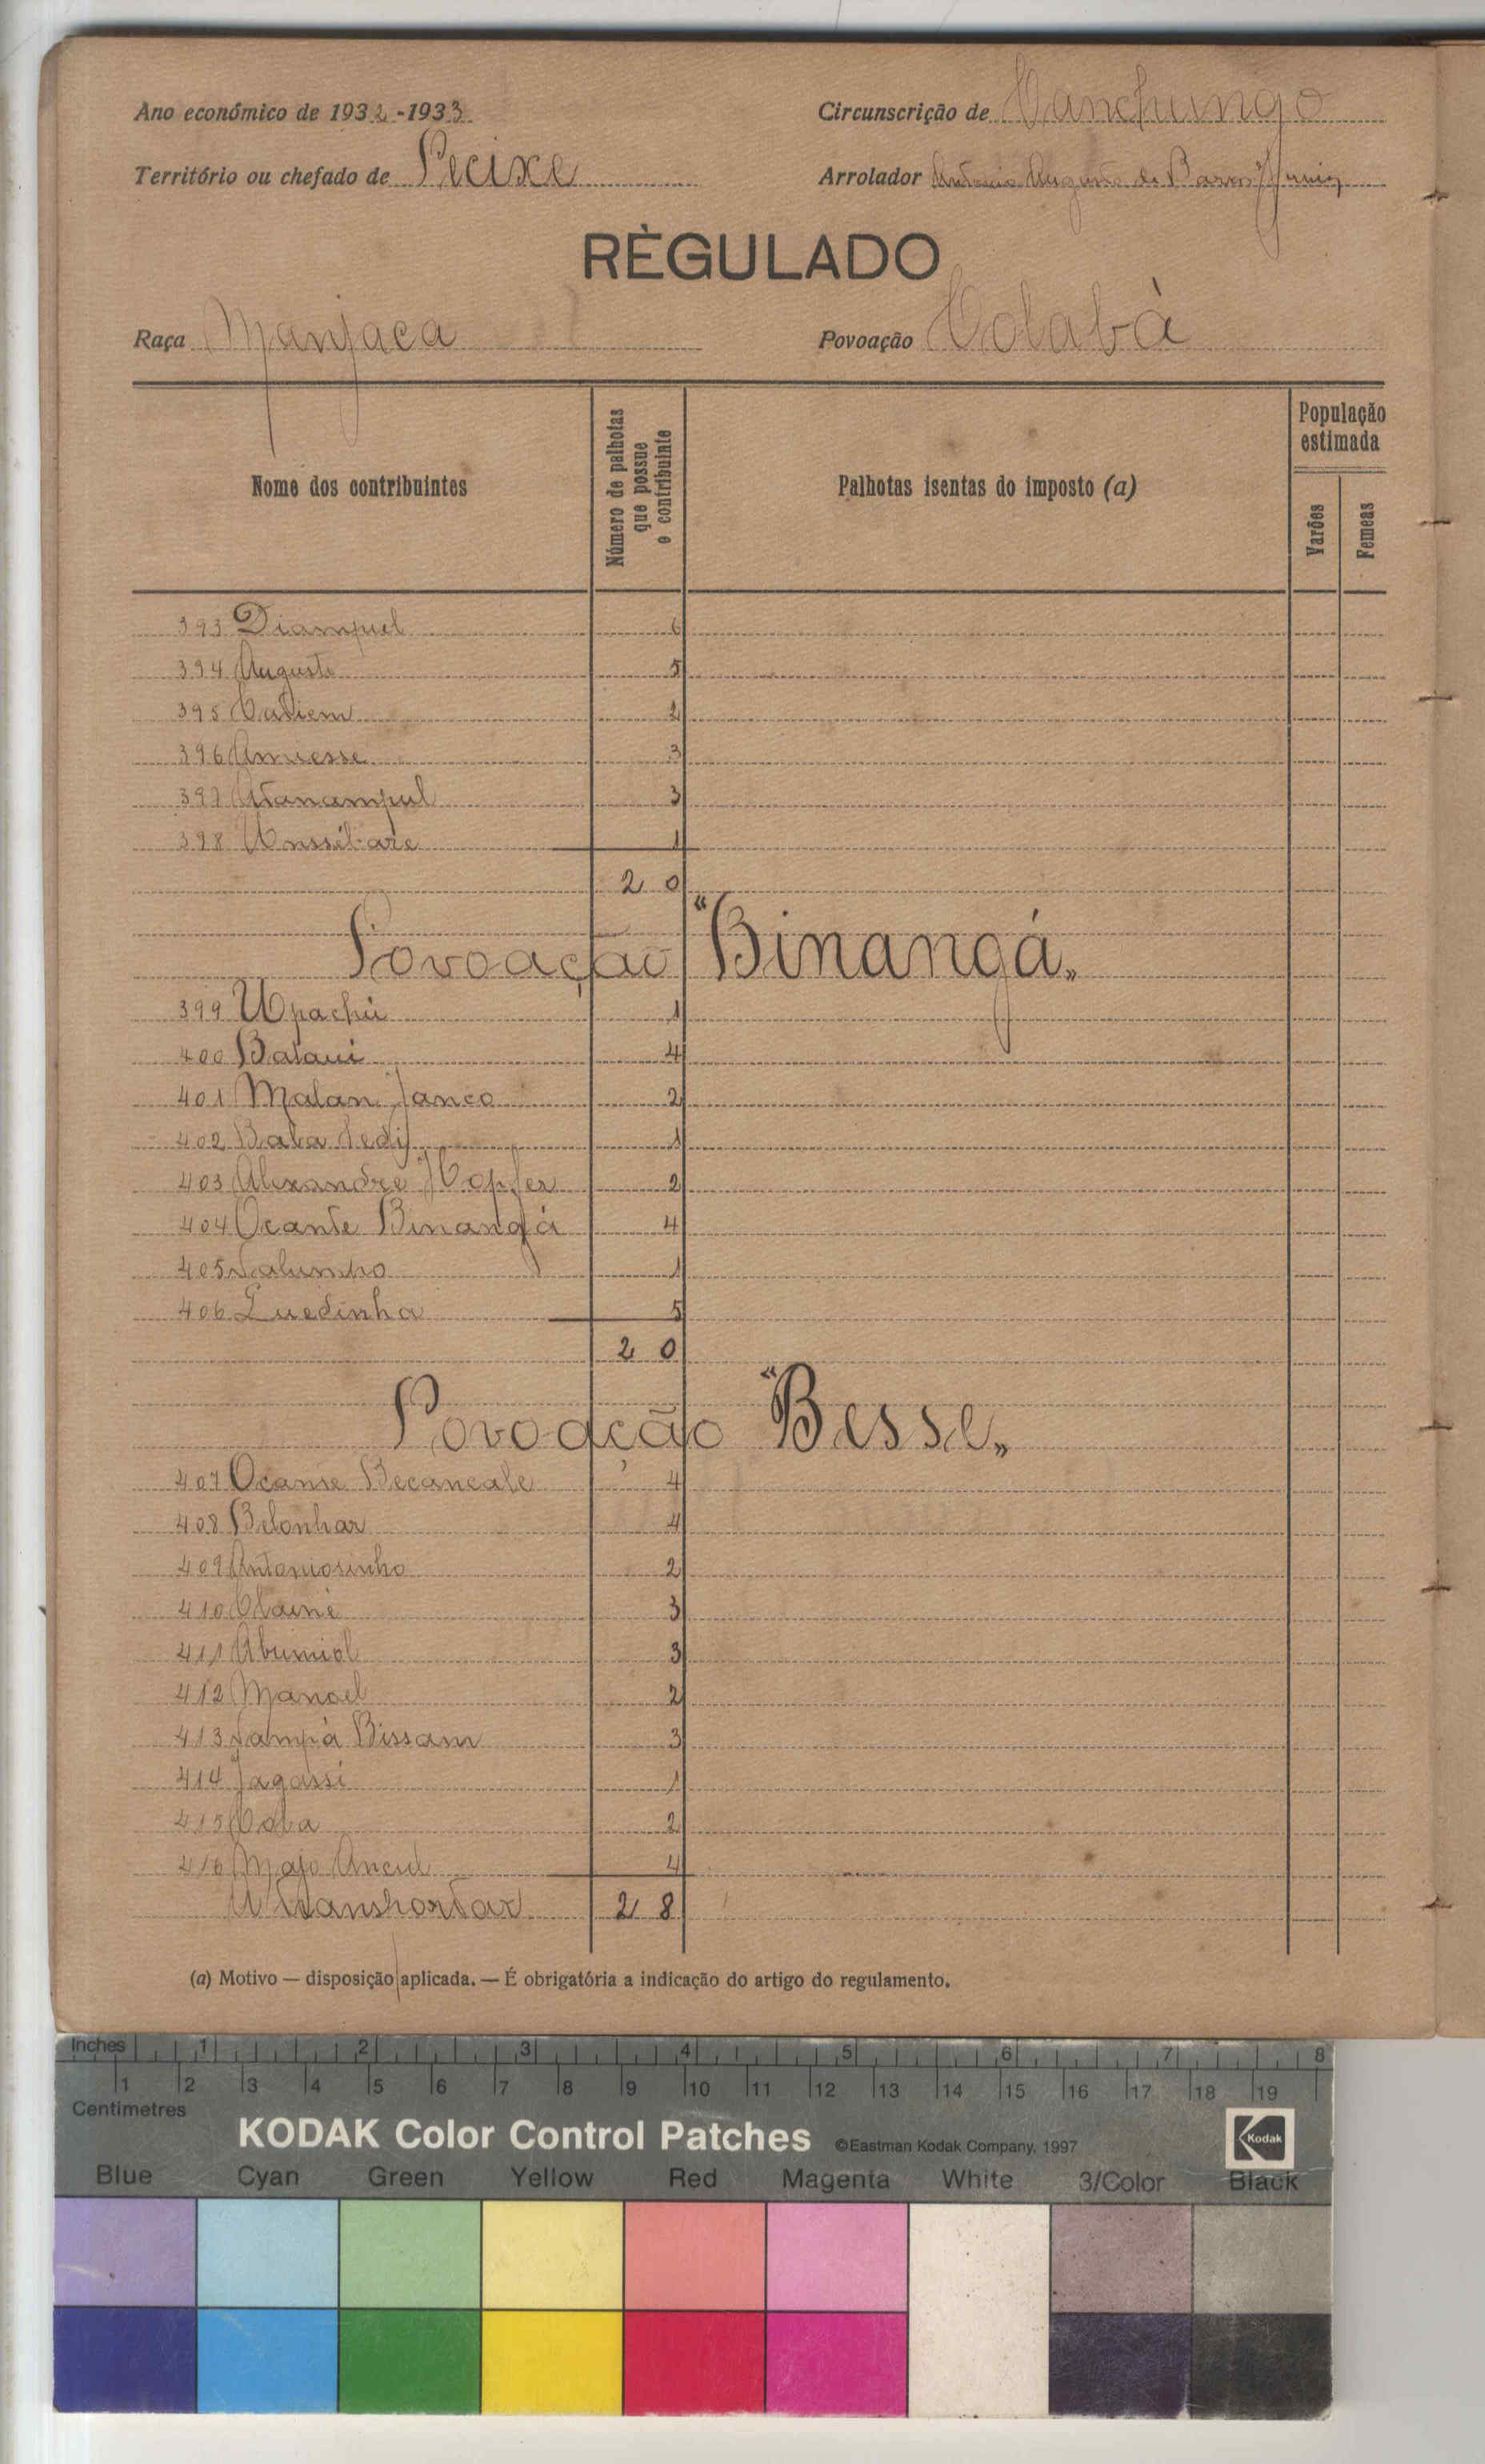 Ano económico de 1932-1933
Circunscrição de Canchungo
Território ou chefado de Pecixe
Arrolador António Augusto de Barros Junior
RÈGULADO
Raça Manjaca
Povoação Colabà
Nome dos contribuintes
Número de palhotas que possue o contribuinte
Palhotas isentas do imposto (a)
População estimada
Varões
Femeas
393 Diampul 6
394 Augusto 5
395 2
396 Amiesse 3
397 Atanampul 3
398 1
20
Povoação "Binangá"
399 Upachú 1
400 Bataui 4
401 Malan Janco 2
402 Baba 1
403 Alexandre Hopfer 2
404 Ocante Binangà 4
405 1
406 Luedinha 5
20
Povoação "Besse"
407 Ocanse Becancale 4
408 Belonhar 4
409 Antoniosinho 2
410 3
411 Abumiol 3
412 Manoel 2
413 Sampà Bissam 3
414 Jagassi 1
415 2
416 Majo Ancul 4
A transportar 28
(a) Motivo — disposição aplicada. — É obrigatória a indicação do artigo do regulamento.
Inches 1 2 3 4 5 6 7 8
1 2 3 4 5 6 7 8 9 10 11 12 13 14 15 16 17 18 19
Centimetres
KODAK Color Control Patches ©Eastman Kodak Company, 1997 Kodak
Blue Cyan Green Yellow Red Magenta White 3/Color Black